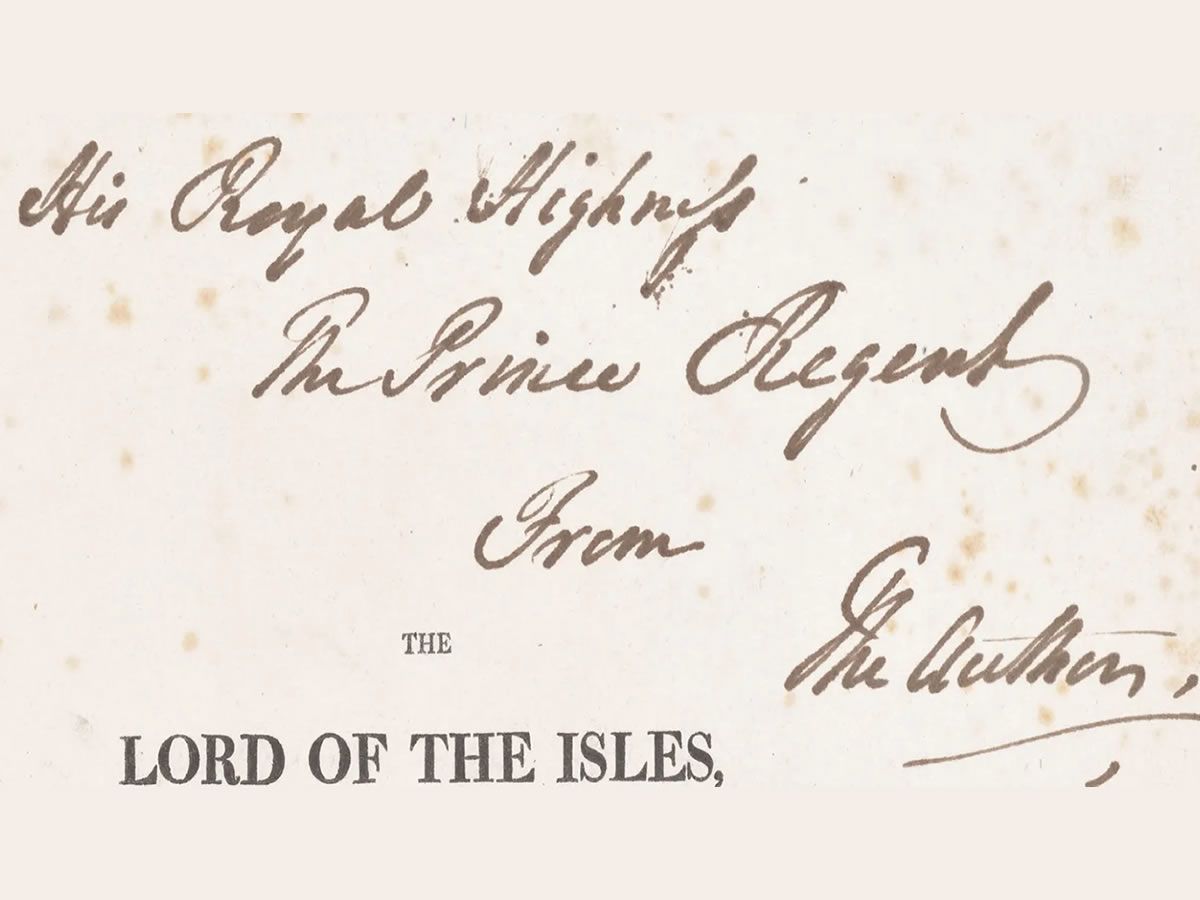 His Royal Highneſs
The Prince Regent
From
The Author,
THE
LORD OF THE ISLES,